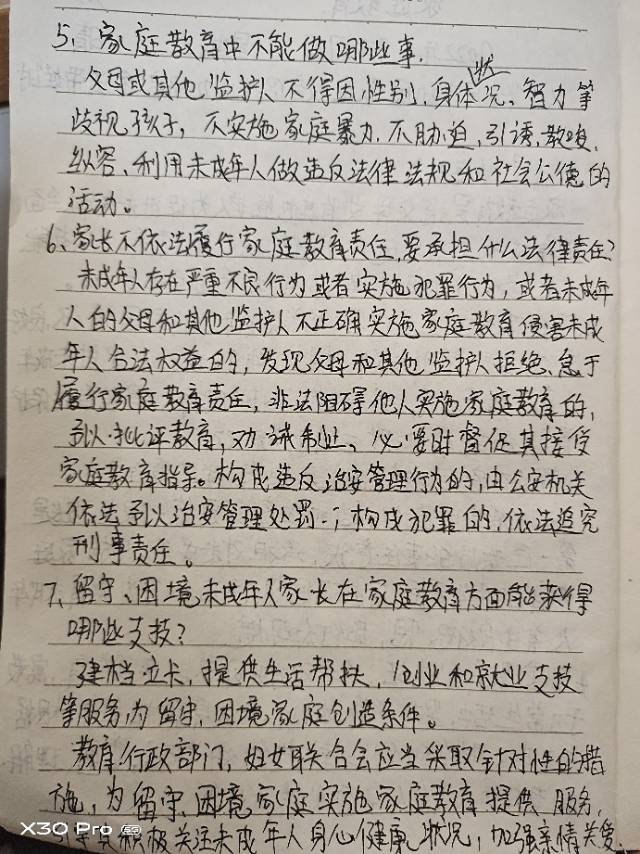 5、家庭教育中不能做哪些事.
父母或其他监护人不得因性别、身体状况、智力等
歧视孩子，不实施家庭暴力.不胁迫，引诱，教唆，
纵容、利用未成年人做违反法律法规和社会公德的
活动。
6、家长不依法履行家庭教育责任,要承担什么法律责任？
未成年人存在严重不良行为或者实施犯罪行为，或者未成年
人的父母和其他监护人不正确实施家庭教育侵害未成
年人合法权益的，发现父母和其他监护人拒绝、怠于
履行家庭教育责任，非法阻碍他人实施家庭教育的，
予以批评教育，劝诫制止、必要时督促其接受
家庭教育指导。构成违反治安管理行为的，由公安机关
依法予以治安管理处罚；构成犯罪的，依法追究
刑事责任。
7、留守、困境未成年人家长在家庭教育方面能获得
哪些支技？
建档立卡，提供生活帮扶，创业和就业支技
等服务,为留守，困境家庭创造条件。
教育行政部门，妇女联合会应当采取针对性的措
施，为留守、困境家庭实施家庭教育提供服务，
积极关注未成年人身心健康状况，加强亲情关爱.
X30 Pro 5G